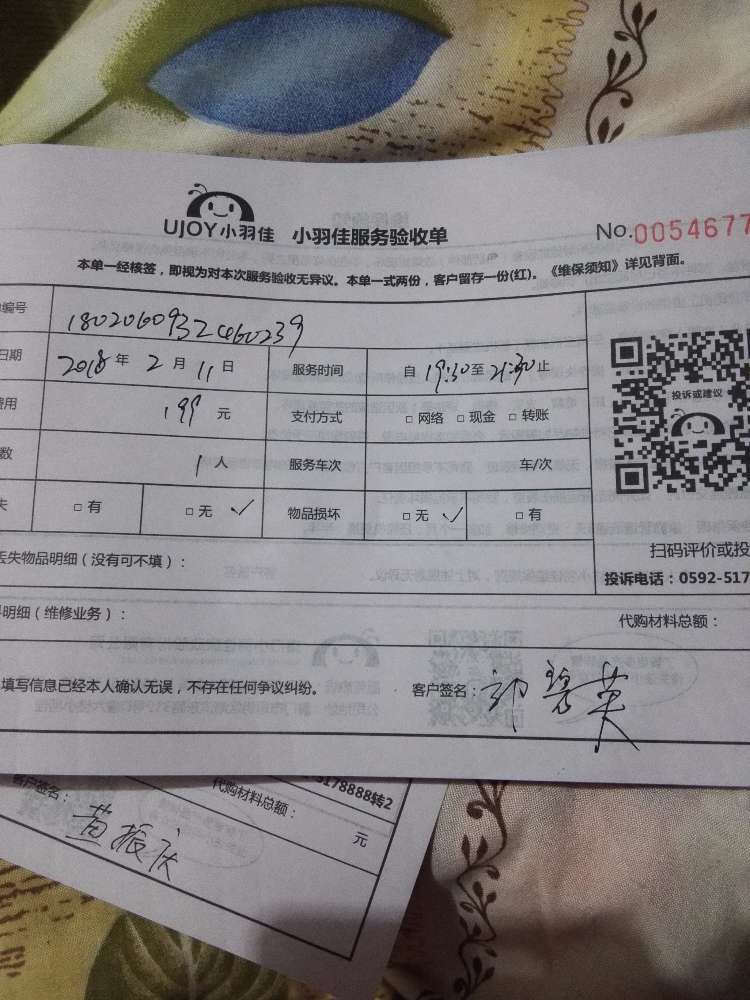 UJOY小羽佳 小羽佳服务验收单 No.0054677
本单一经核签，即视为对本次服务验收无异议。本单一式两份，客户留存一份(红)。《维保须知》详见背面。
编号 1802060932460239
日期 2018 年 2 月 11 日 服务时间 自 19:30 至 21:30 止
费用 199 元 支付方式 □ 网络 □ 现金 □ 转账
数 1 人 服务车次 车/次
失 □ 有 □ 无 ✓ 物品损坏 □ 无 ✓ □ 有
投诉或建议
扫码评价或投
丢失物品明细（没有可不填）：
投诉电话：0592-517
明细（维修业务）： 代购材料总额：
填写信息已经本人确认无误，不存在任何争议纠纷。 客户签名：郭碧英
5178888转2
代购材料总额： 元
客户签名：黄振庆